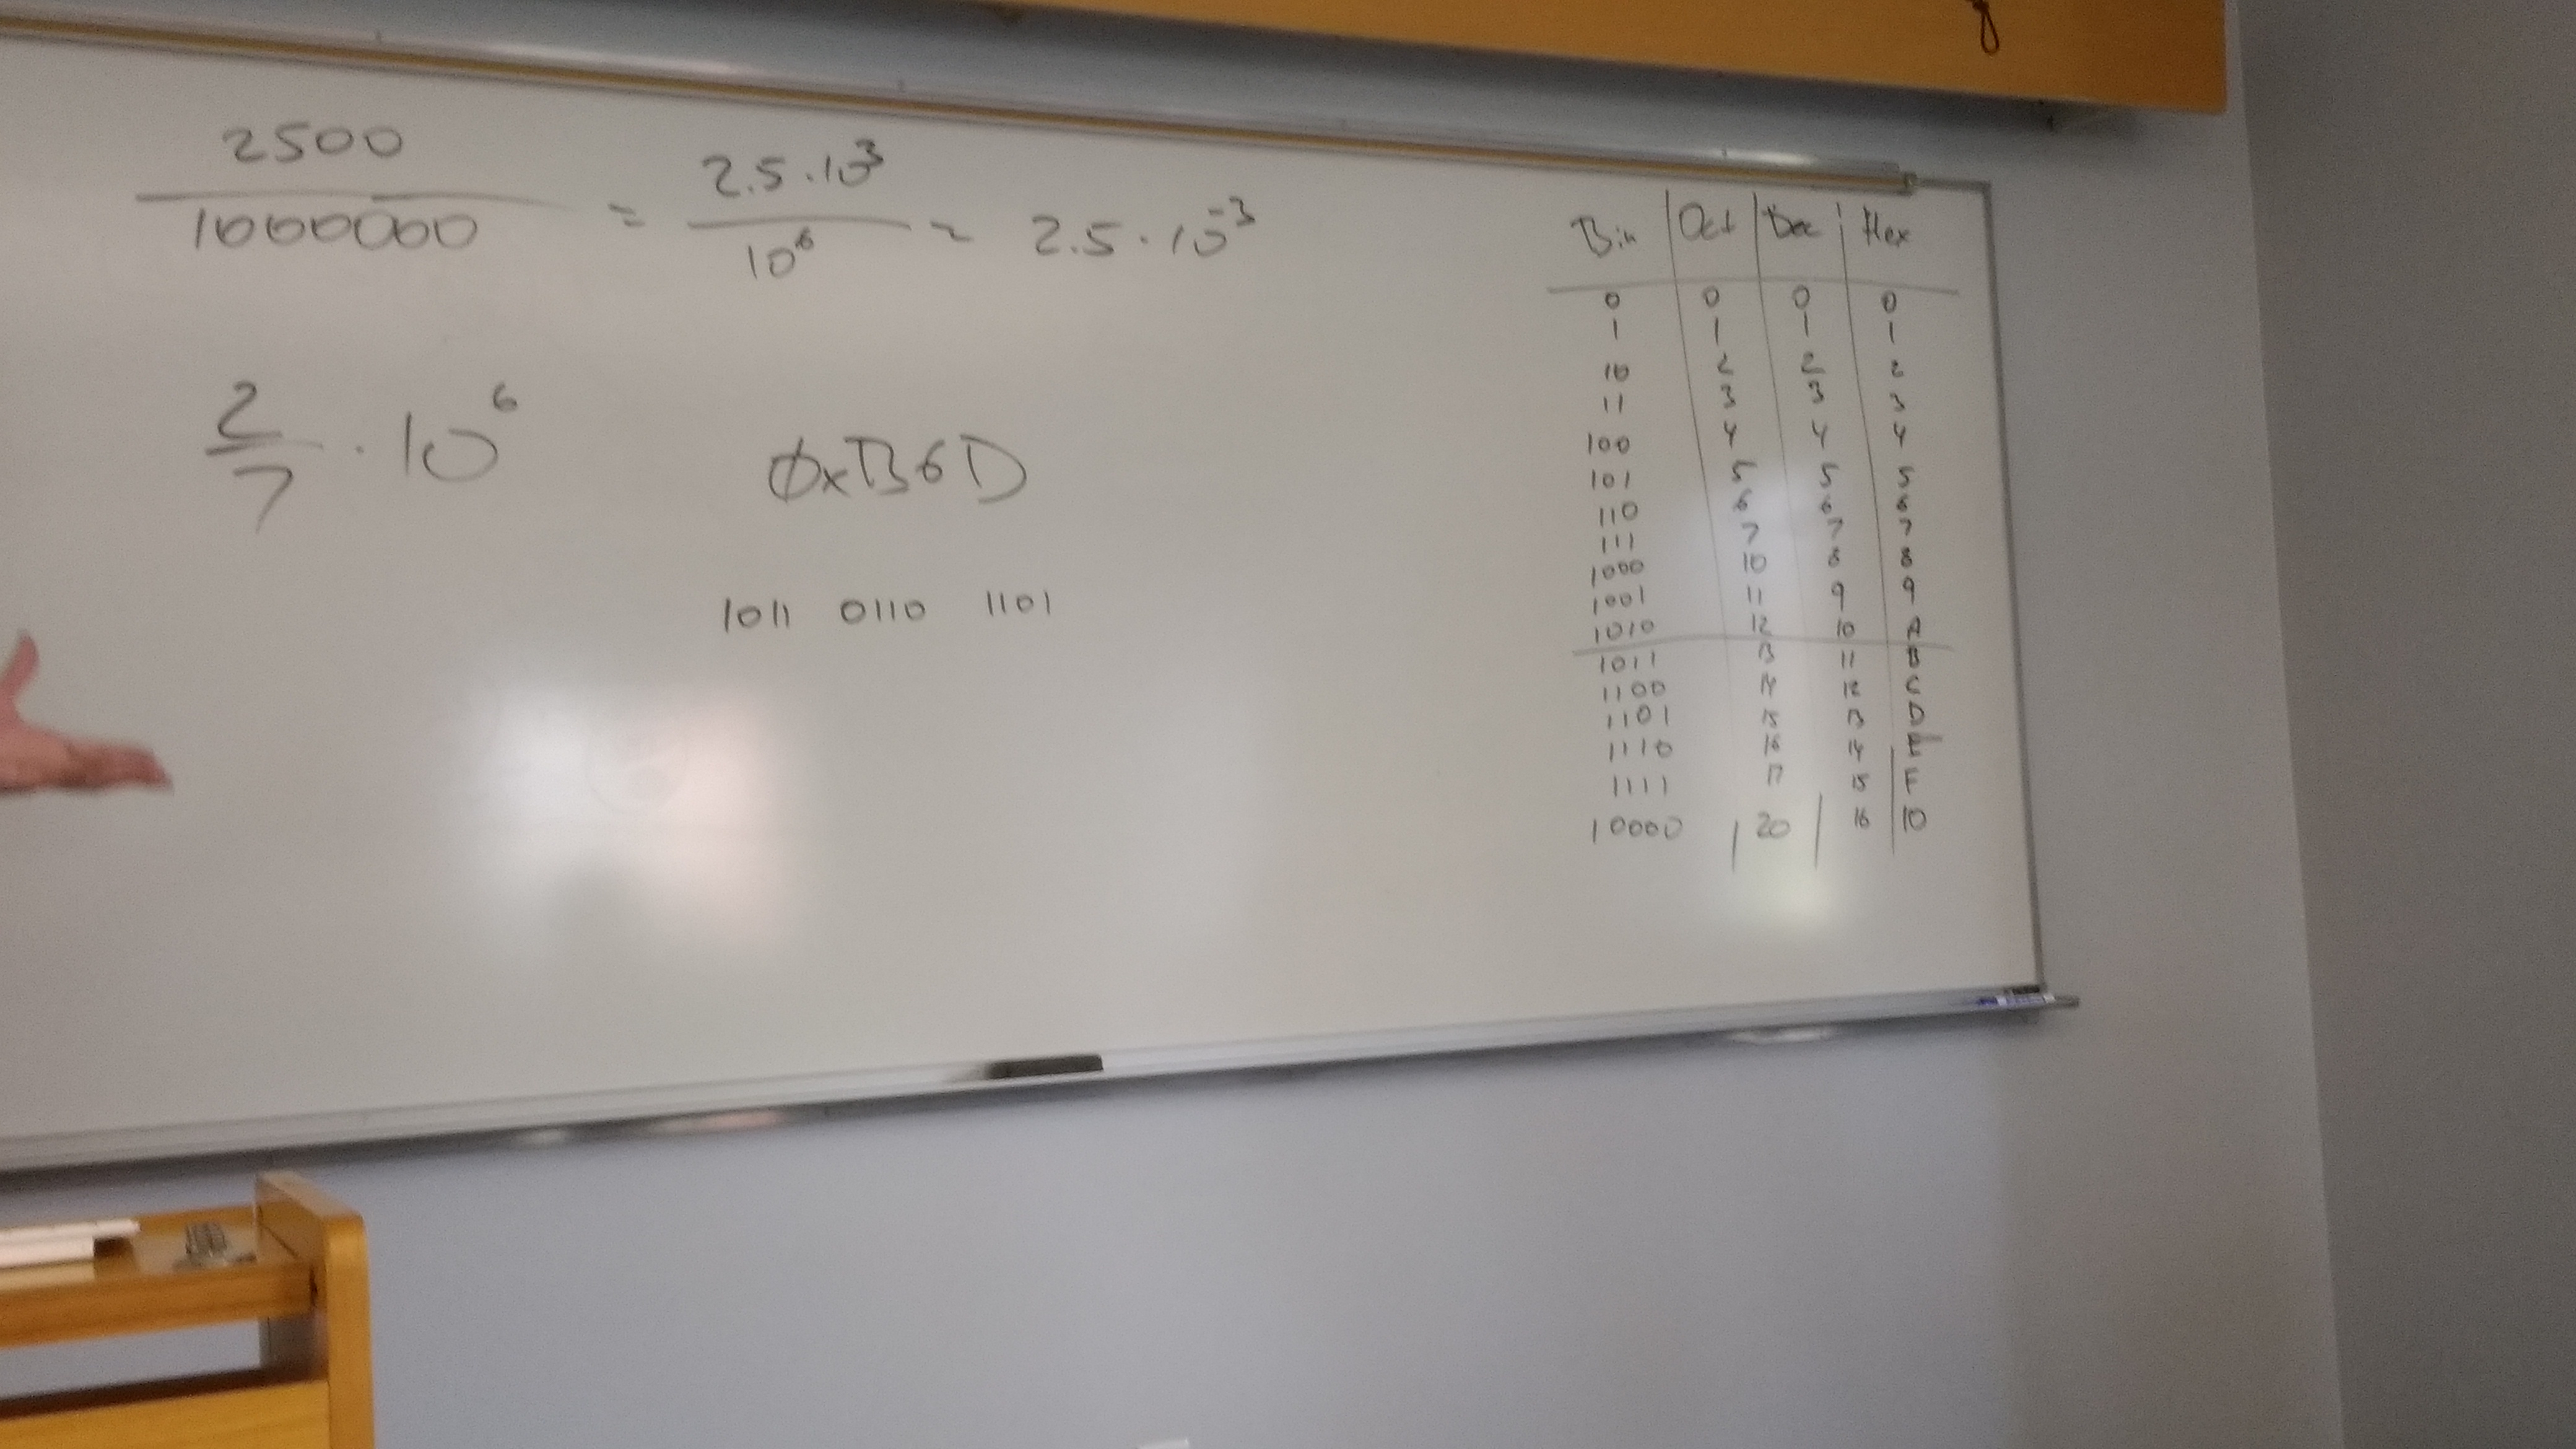 2500
1000000
=
2.5 · 10³
10⁶
=
2.5 · 10⁻³
2
7
· 10⁶
0xB6D
1011 0110 1101
Bin Oct Dec Hex
0 0 0 0
1 1 1 1
10 2 2 2
11 3 3 3
100 4 4 4
101 5 5 5
110 6 6 6
111 7 7 7
1000 10 8 8
1001 11 9 9
1010 12 10 A
1011 13 11 B
1100 14 12 C
1101 15 13 D
1110 16 14 E
1111 17 15 F
10000 20 16 10